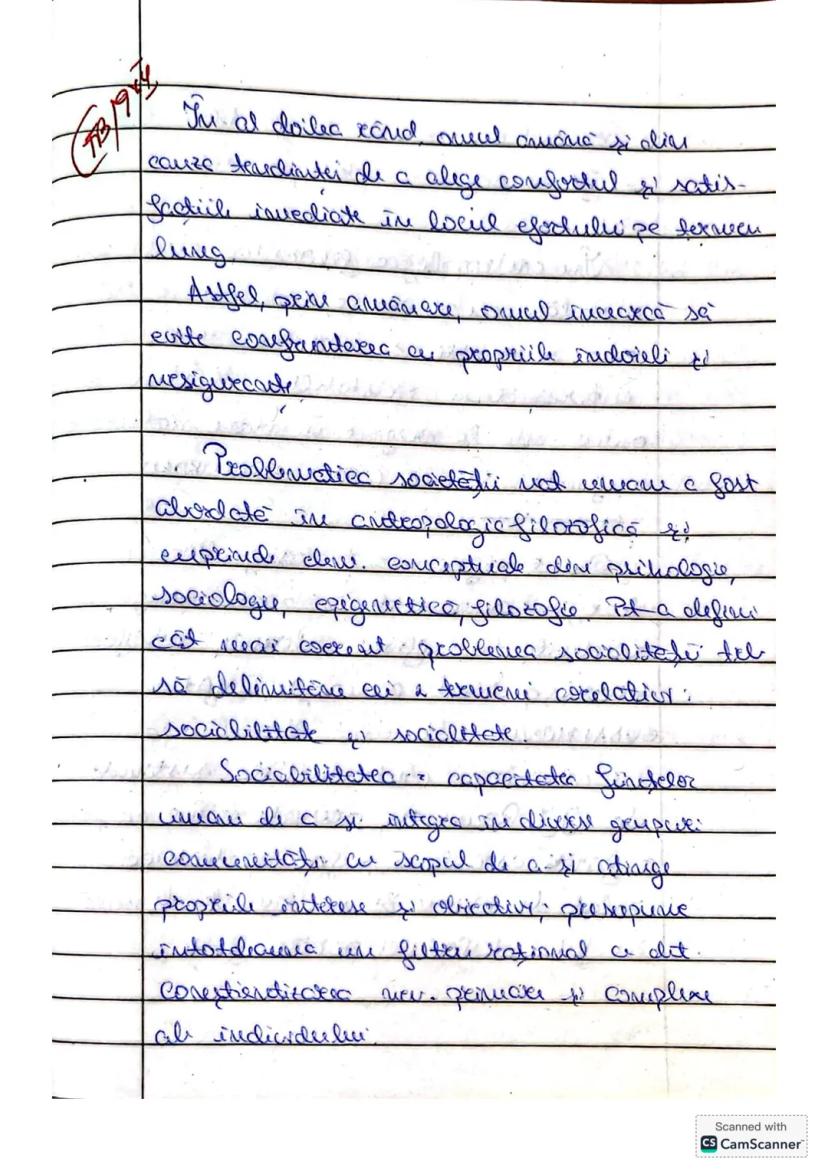 În al doilea rând, omul amână și din
cauza tendinței de a alege confortul și satis-
facțiile imediate în locul efortului pe termen
lung
Astfel, prin amânare, omul încearcă să
evite confruntarea cu propriile îndoieli și
nesiguranțe
Problematica societății nat umane a fost
abordată în antropologie filozofică și
cuprinde elem. conceptuale din psihologie,
sociologie, epigenetică, filozofie. Pt a defini
cât mai coerent problema socialității tb
să delimităm cei 2 termeni corelativi:
sociabilitate și socialitate.
Sociabilitatea = capacitatea ființelor
umane de a se integra în diverse grupuri
comunități cu scopul de a-și atinge
propriile interese și obiective; presupune
întotdeauna un filtru rațional ce det.
conștientizarea nev. primare și complexe
ale individului.
Scanned with
CS CamScanner